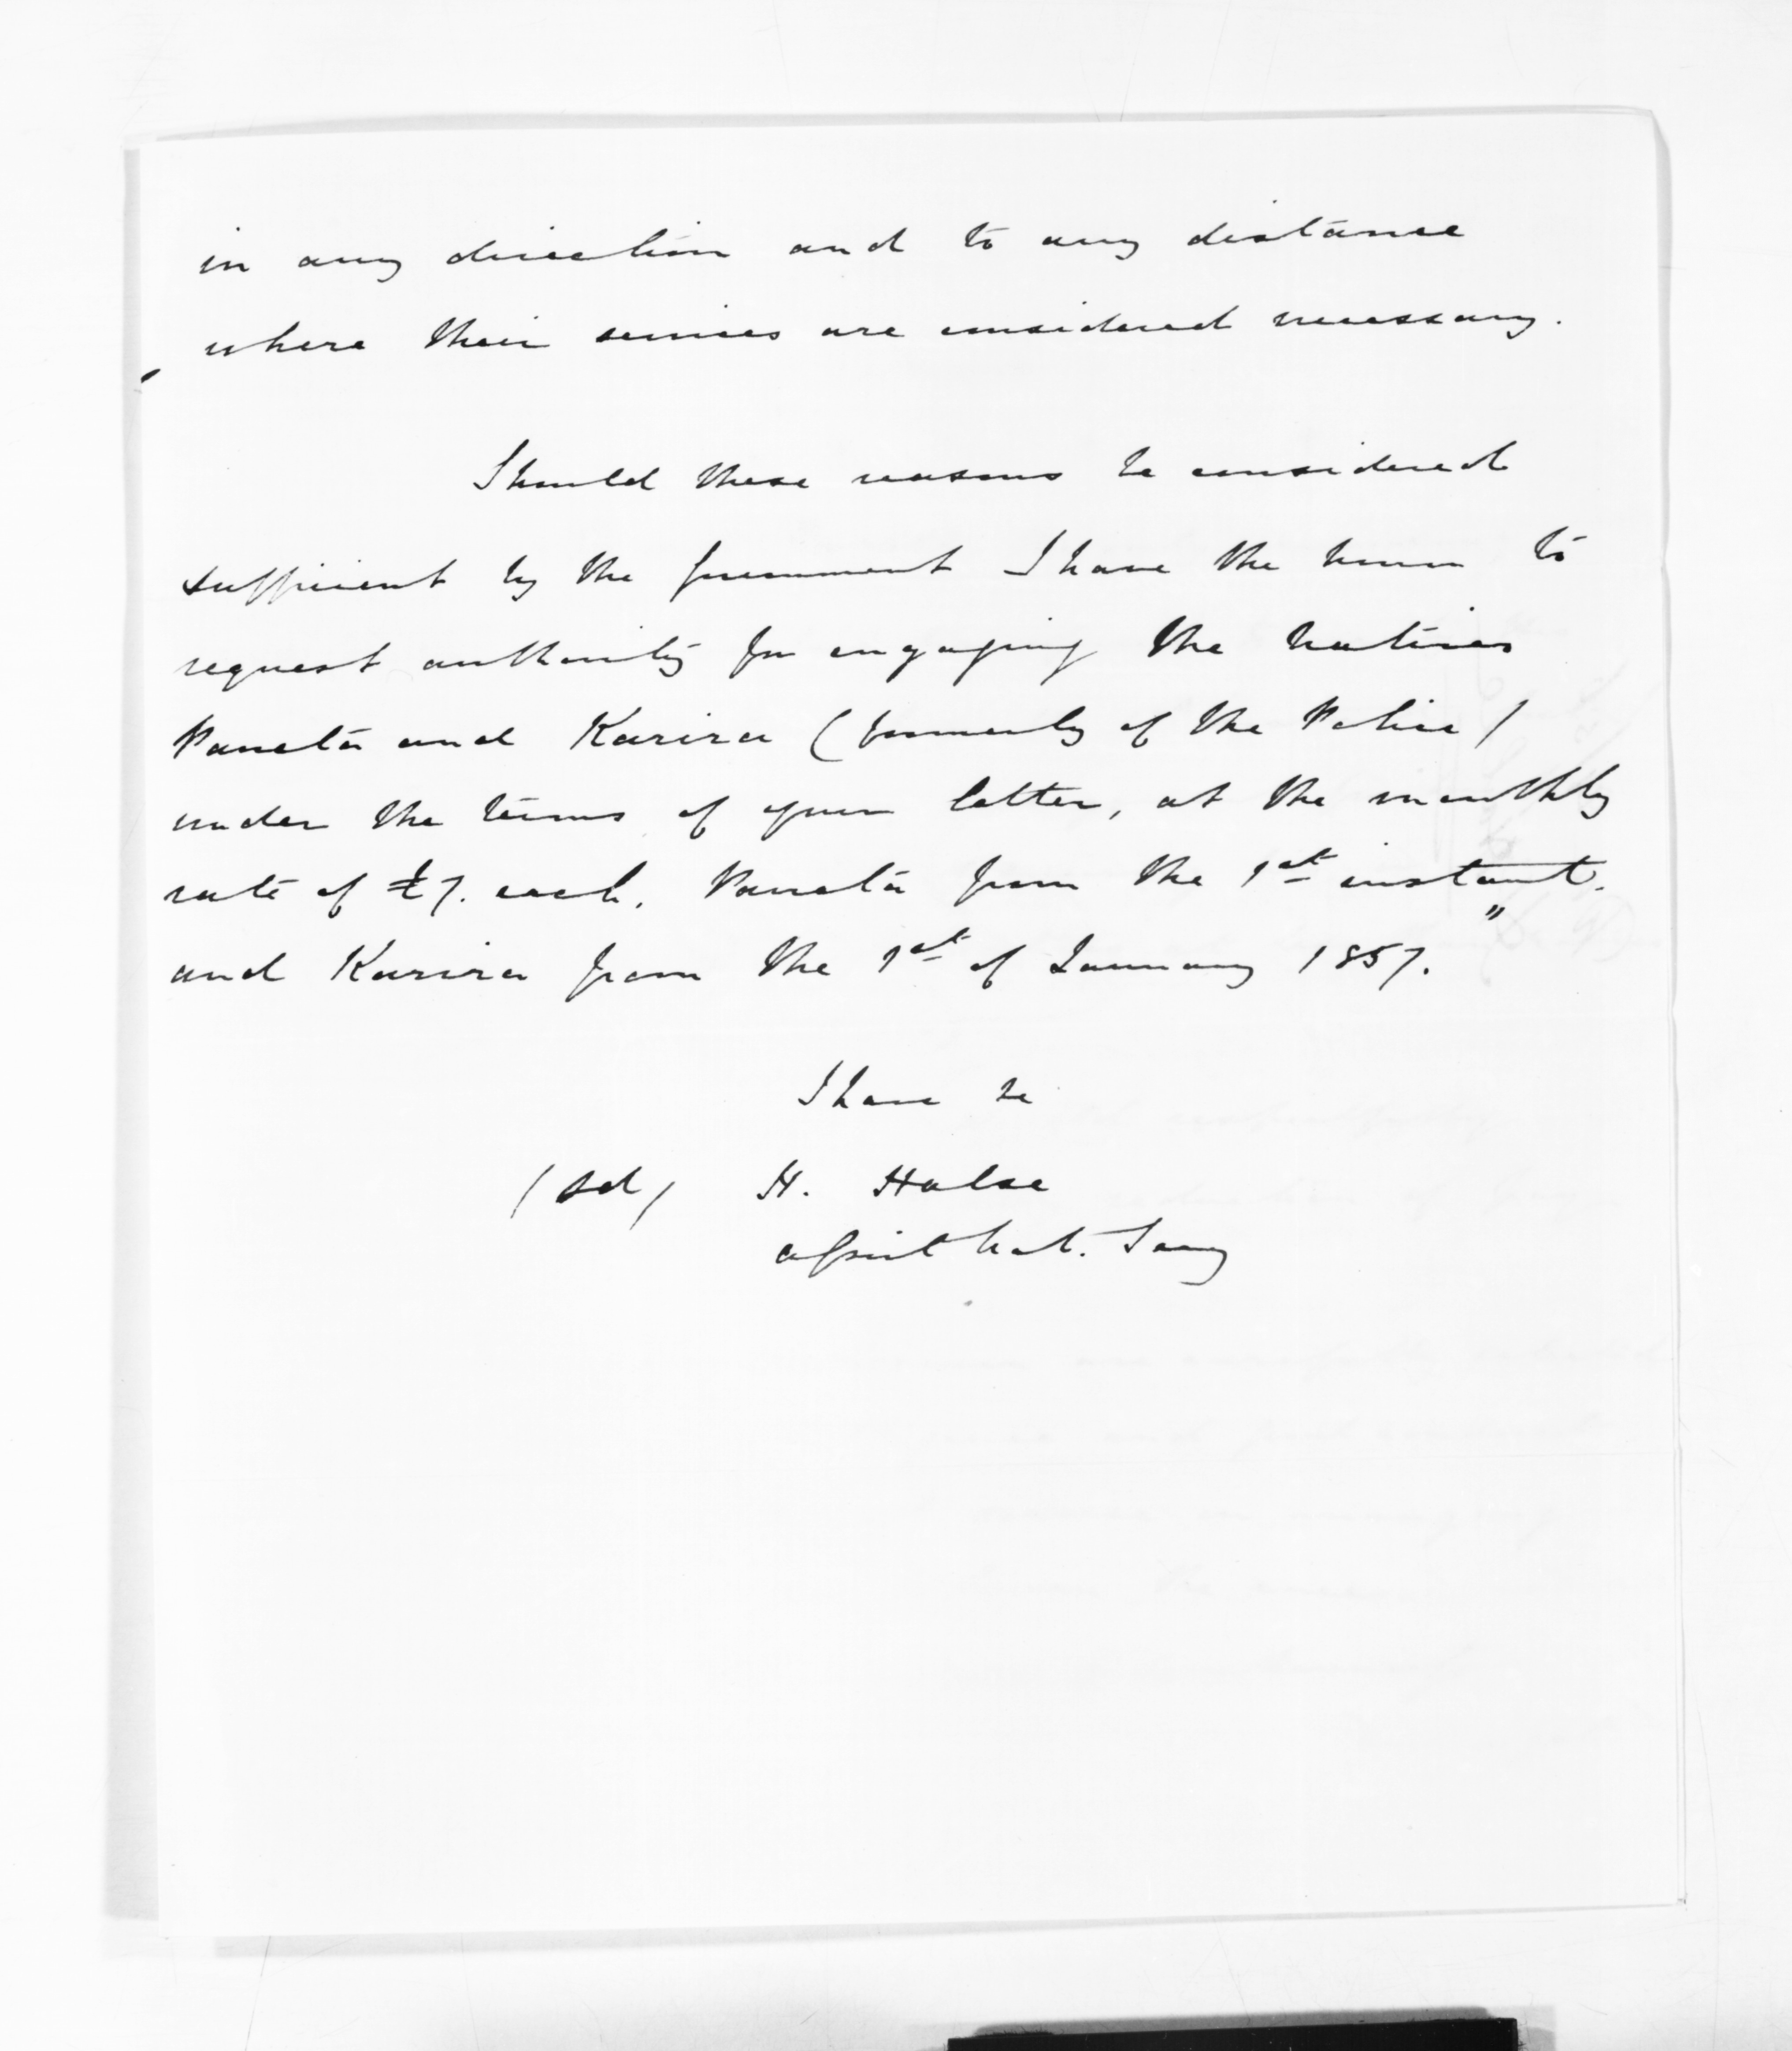 in any direction and to any distance
where their services are considered necessary.
Should these reasons be considered
sufficient by the Government I have the honor to
request authority for engaging the natives
and Karira (formerly of the Police)
under the terms of your letter, at the monthly
rate of £7. each, from the 1st instant.
and Karira from the 1st of January 1857.
I have &c
(sd) H. Halse
Assist Nat. Secy